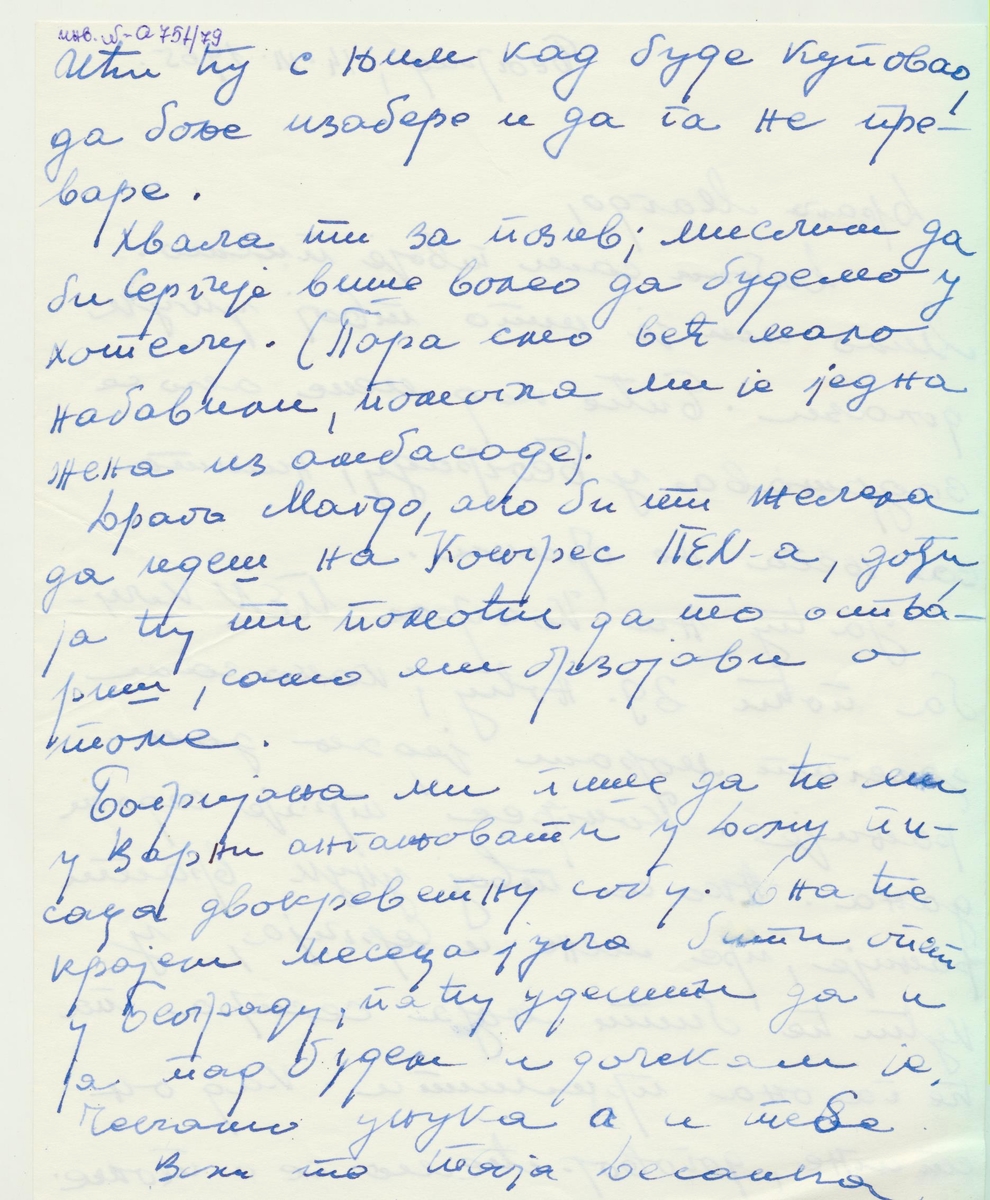 инв. бр. а 751/79
Ићи ћу с њим кад буде куповао,
да боље изабере и да га не пре-
варе.
Хвала ти за позив; мислим да
би Сергије више волео да будемо у
хотелу. (Пара смо већ мало
набавили, помогла ми је једна
жена из амбасаде).
Драга Магдо, ако би ти желела
да идеш на Конгрес ПЕN-а, дођи,
ја ћу ти помоћи да то оства-
риш, само ми брзојави о
томе.
Багрјана ми пише да ће ми
у Варни ангажовати у Дому пи-
саца двокреветну собу. Она ће
крајем месеца јула бити опет
у Београду, па ћу удесити да и
ја тад будем и дочекам је.
Честам унука а и тебе
Воли те твоја Десанка